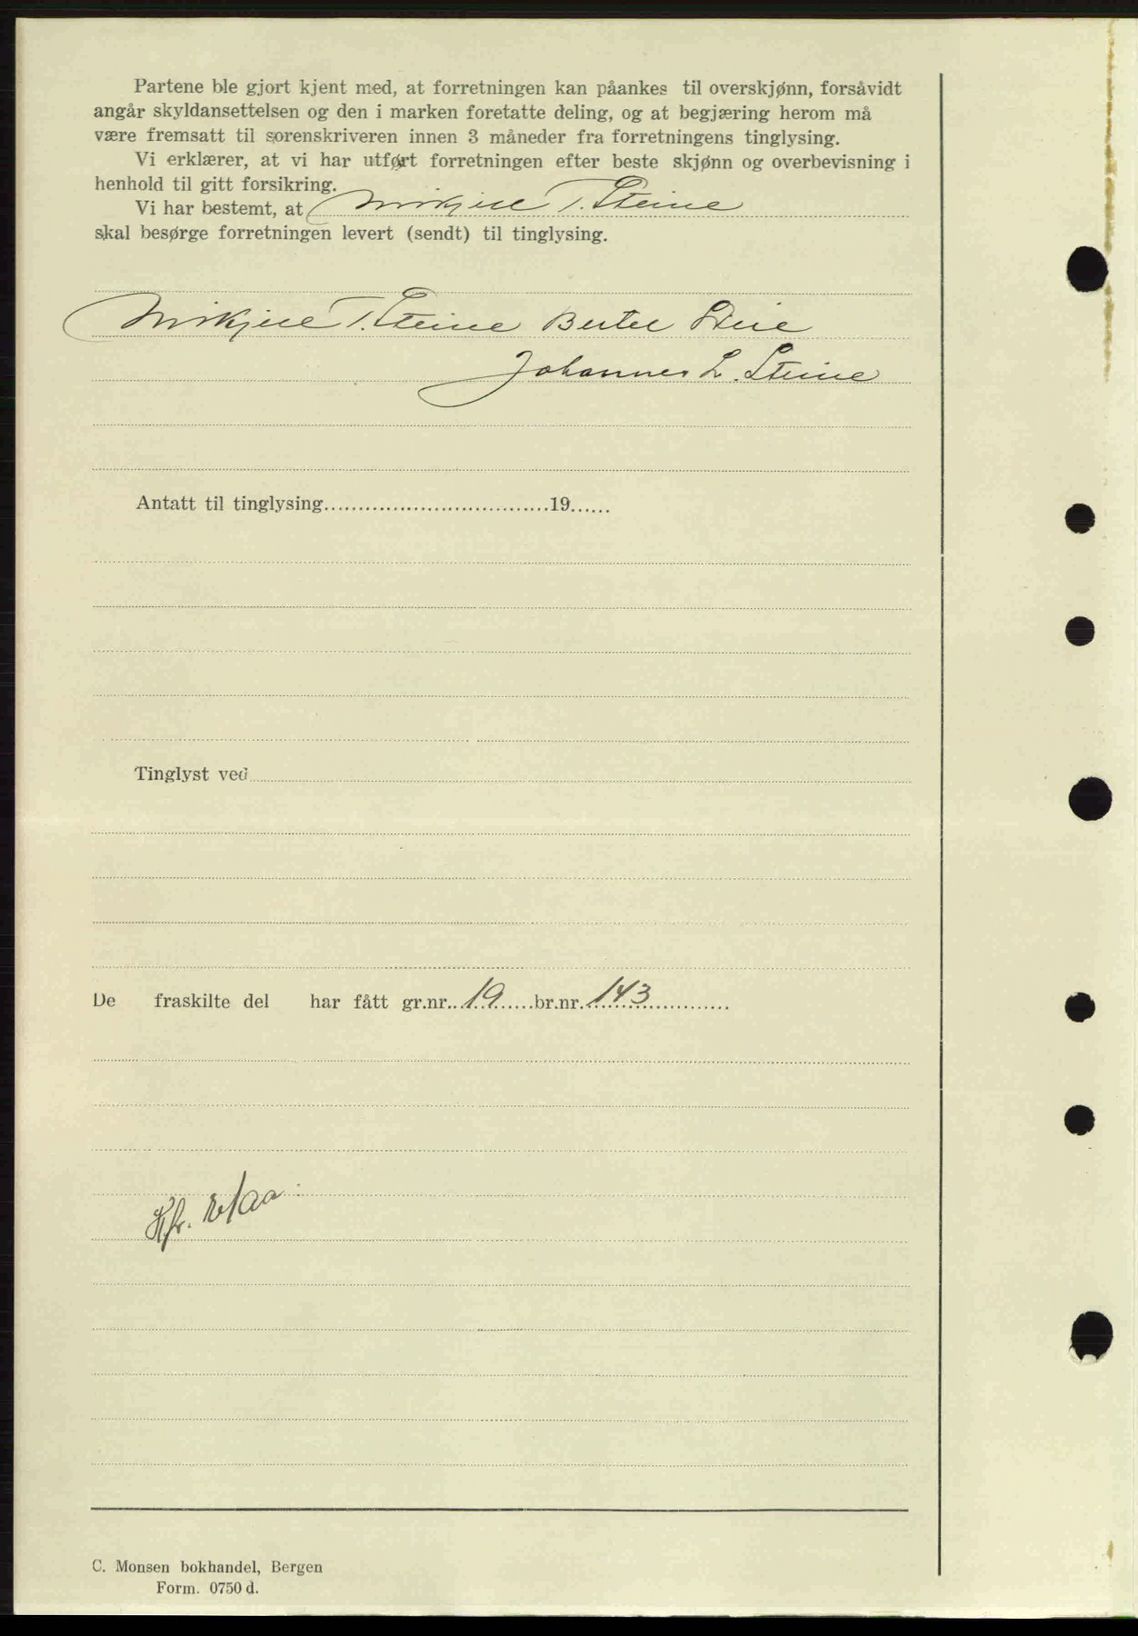 Partene ble gjort kjent med, at forretningen kan påankes til overskjønn, forsåvidt
angår skyldansettelsen og den i marken foretatte deling, og at begjæring herom må
være fremsatt til sorenskriveren innen 3 måneder fra forretningens tinglysing.
Vi erklærer, at vi har utført forretningen efter beste skjønn og overbevisning i
henhold til gitt forsikring.
Vi har bestemt, at T. Steine
skal besørge forretningen levert (sendt) til tinglysing.
T. Steine
Johannes L. Steine
Antatt til tinglysing.................................19......
Tinglyst ved
De fraskilte del har fått gr.nr. 19 br.nr. 143
Kfr.
C. Monsen bokhandel, Bergen
Form. 0750 d.